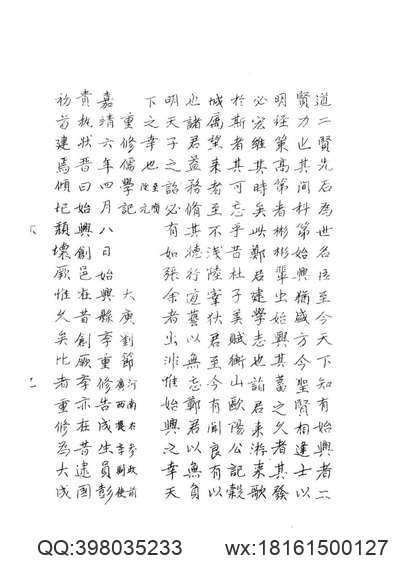 道二賢先后為世名臣至今天下知有始興者二
賢力也其間科第始興猶盛方今聖賢相逢士以
明經策高第者彬彬輩出始興蓄之久者其發
必宏維其時矣此鄭君建學志也諭君之来游来歌
於斯者其可忘乎昔杜子美賦衡山歐陽公記穀
城属望来者至不浅陸宰狄以無至今有聞良有以
也諸君益務脩其德行道藝以無忘鄭君以無負
明天子之詒必有如張余者出非惟始興之幸天
下之幸也
重修儒學記 大庾劉節 河南右參政前
廣西提學副使
嘉靖六年四月八日始興縣李重修告成生員彭
貴執狀晋曰始興創邑在昔創厥李亦在昔逮國
初首建焉傾圮頽壞厥惟久矣比者重修為大成
QQ:398035233 wx:18161500127